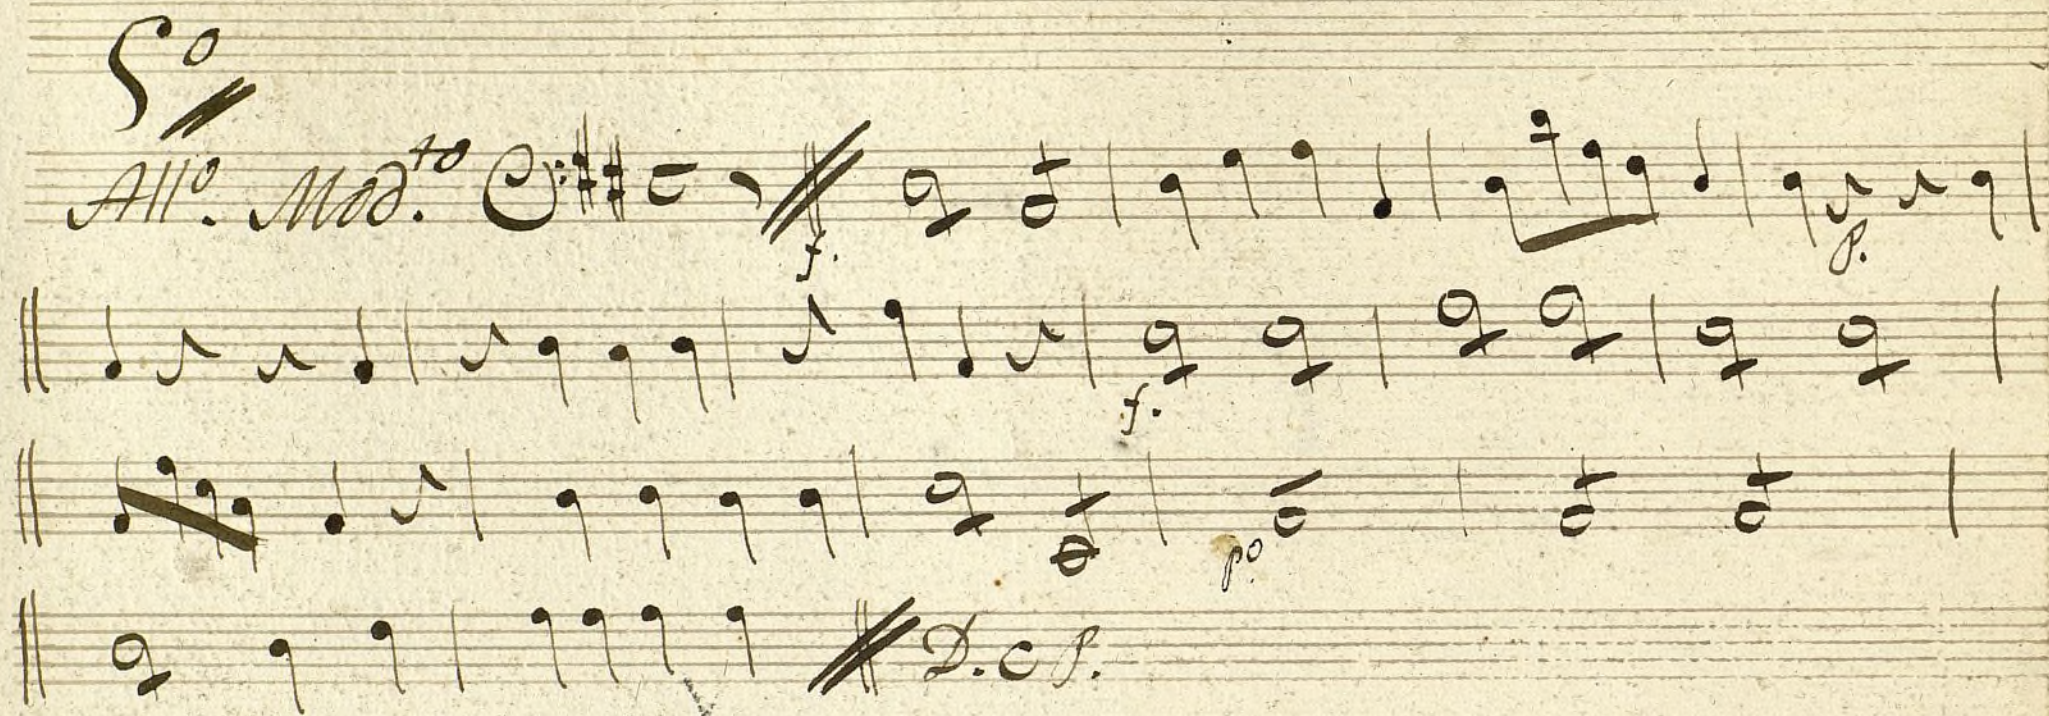 5º
Allº. Mod.to
f. p.
f.
pº
D. C P.